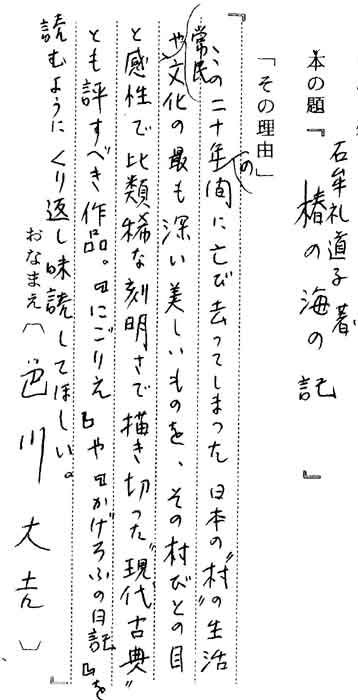 石牟礼道子著
本の題『椿の海の記』
「その理由」
『この二十年間に亡び去ってしまった日本の"村"の生活
や文化の最も深い美しいものを、その村びとの目
常民の
と感性で比類稀な刻明さで描き切った"現代古典"
とも評すべき作品。『にごりえ』や『かげろふの日記』を
読むようにくり返し味読してほしい。』
おなまえ〔色川大吉〕